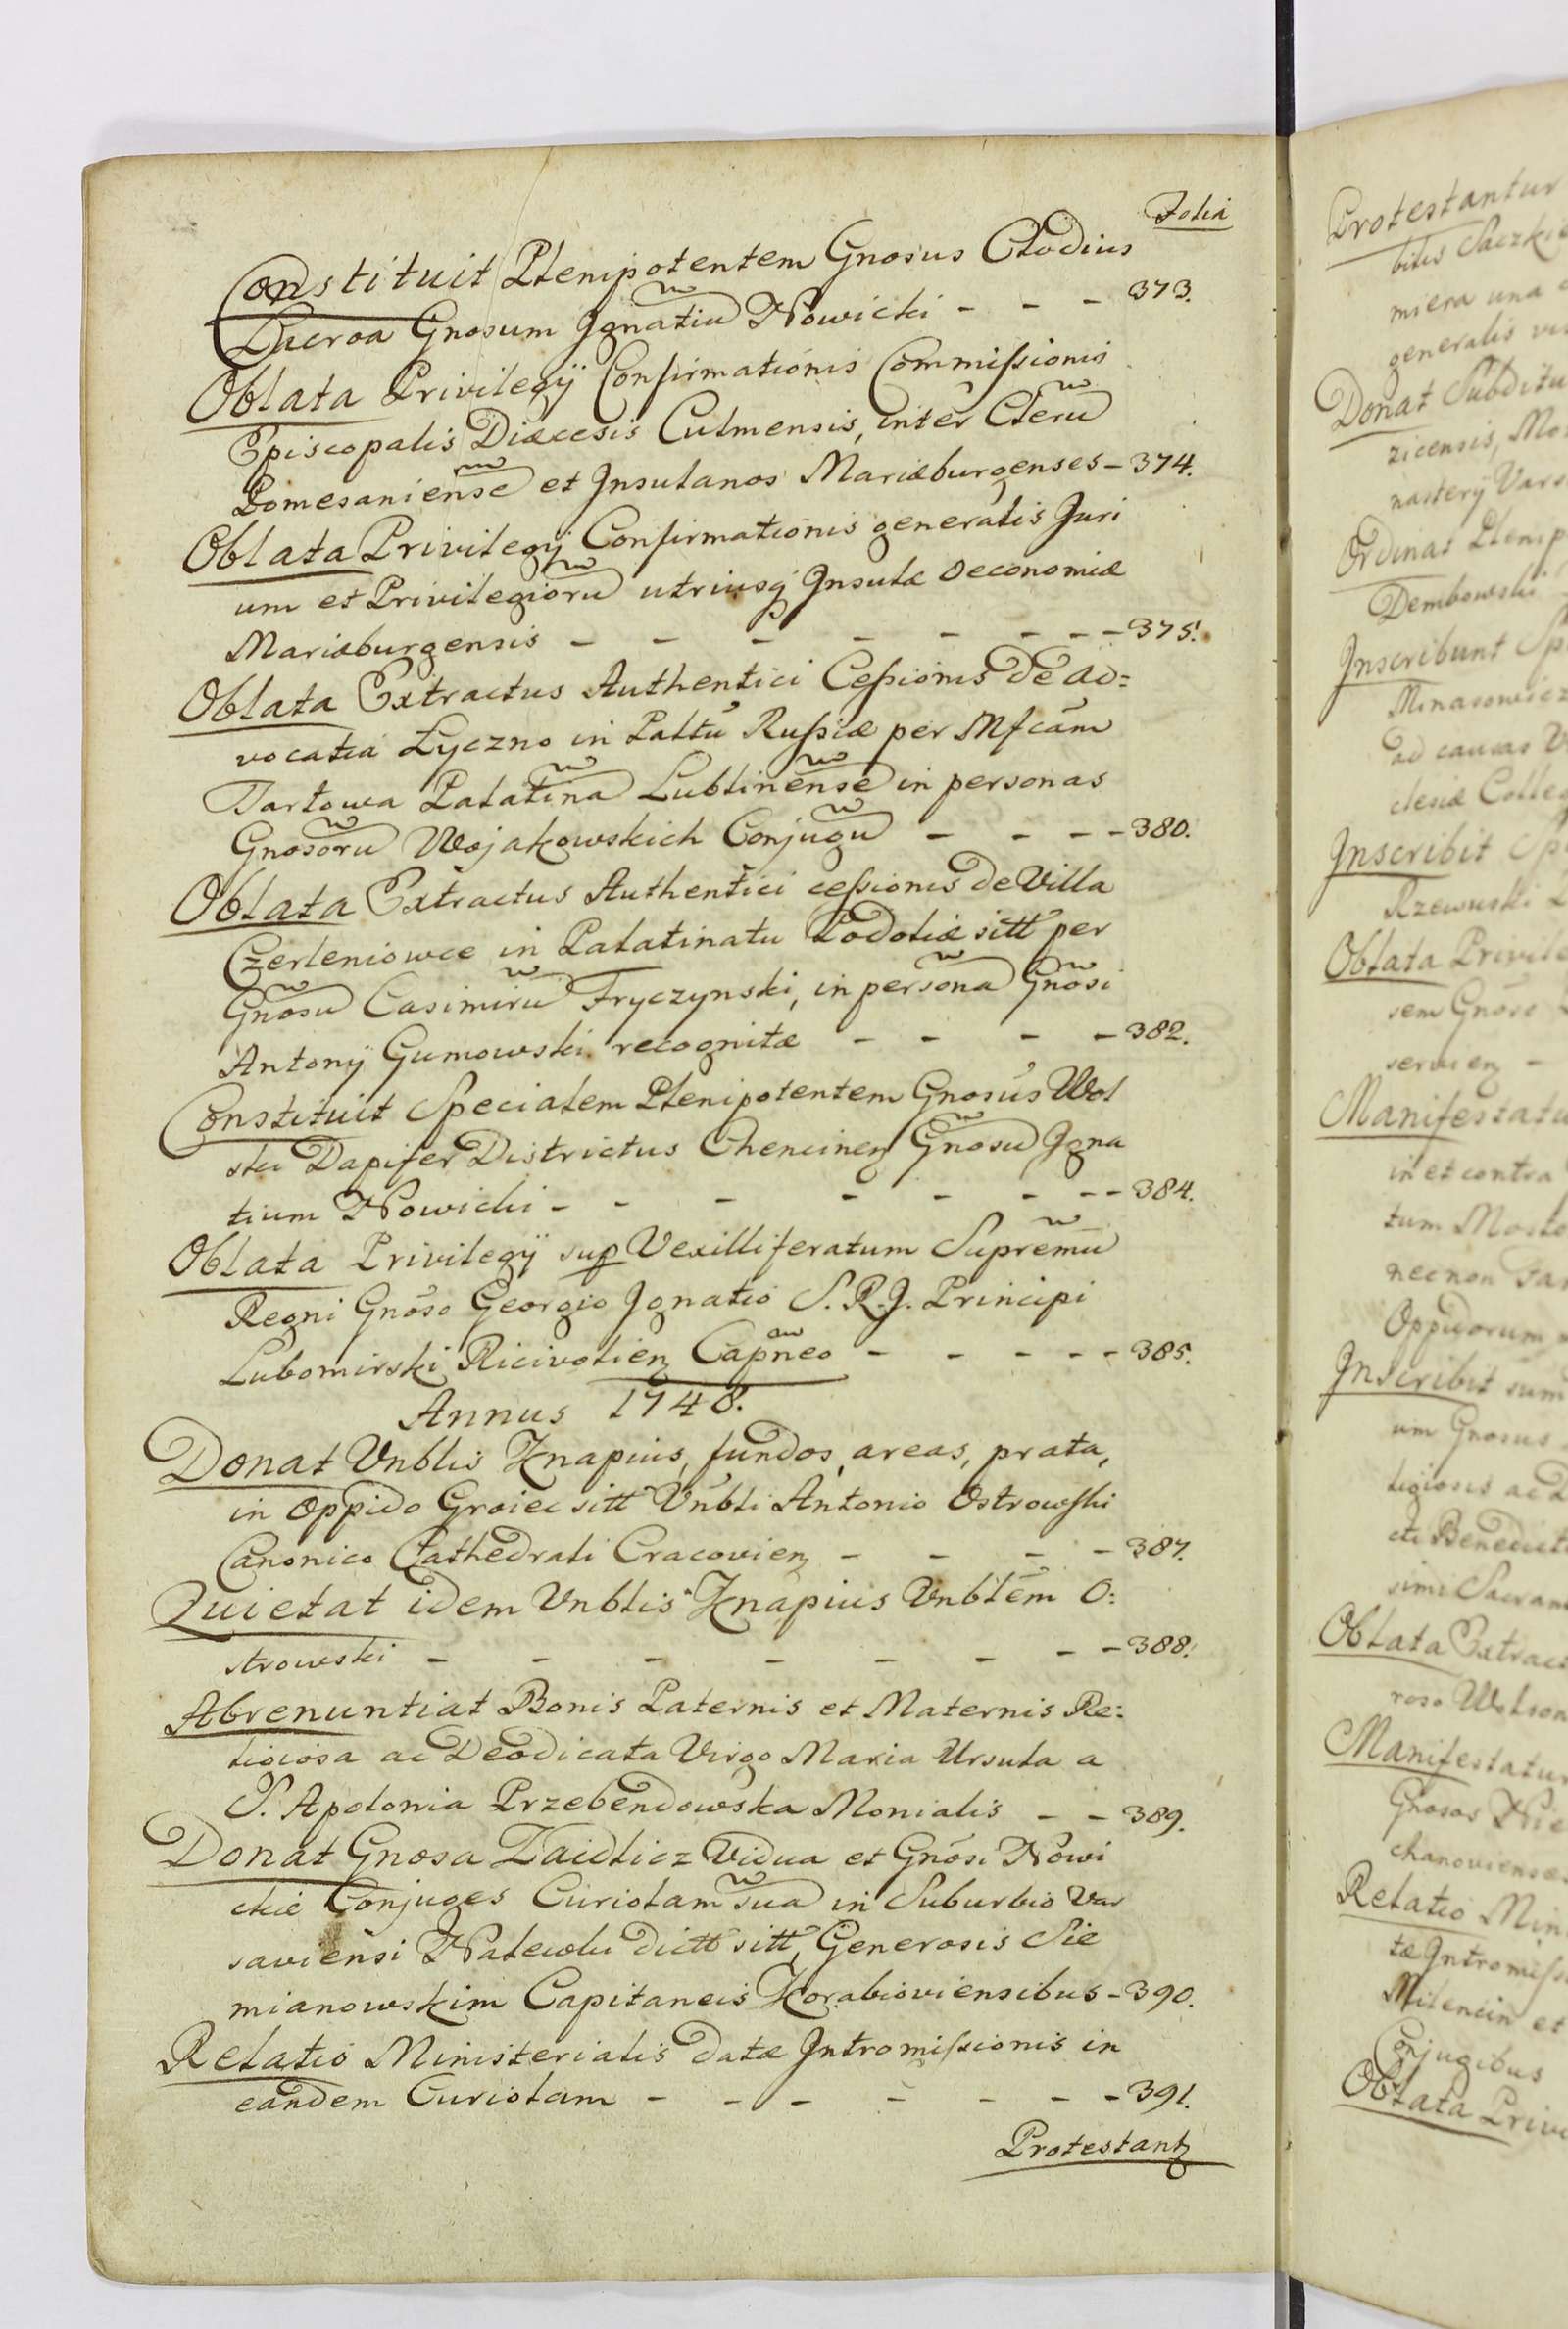 Folia
Constituit Plenipotentem Gnosus Clodius
Lacroa Gnosum Ignatiũ Nowicki - - - 373.
Oblata Privilegÿ Confirmationis Commissionis
Episcopalis Diæcesis Culmensis, inter Clerũ
Pomesaniense͠ et Insulanos Mariæburgenses - 374.
Oblata Privilegÿ Confirmationis generalis Juri
um et Privilegiorũ utriusq́ Insulæ Oeconomiæ
Mariæburgensis - - - - - - - - 375.
Oblata Extractus Authentici Cessionis de Ad=
vocatia Łyczno in Palttũ Russiæ per Mfcam
Tarłowa Palatina͠ Lublinense͠ in personas
Gnosorũ Wojakowskich Conjugũ - - - - 380.
Oblata Extractus Authentici cessionis de Villa
Czerleniowce in Palatinatu Podoliæ sitt per
Gnosũ Casimirũ Fryczynski, in persona͠ Gnõsi
Antonÿ Gumowski recognitæ - - - - 382.
Constituit Specialem Plenipotentem Gnosus Wol
ski Dapifer Districtus Chencinen̄ Gnosũ Igna
tium Nowicki - - - - - - - - 384.
Oblata Privilegÿ sup Vexilliferatum Supremũ
Regni Gnoso Georgio Ignatio S. R. J. Principi
Lubomirski, Ricivolien̄ Capn̄eo - - - - - 385.
Annus 1748.
Donat Vnblis Knapius, fundos, areas, prata,
in Oppido Groiec sitt Vnbli Antonio Ostrowski
Canonico Cathedrali Cracovien̄ - - - - 387.
Quietat idem Vnblis Knapius Vnblem O:
strowski - - - - - - - - 388.
Abrenuntiat Bonis Paternis et Maternis Re:
ligiosa ac Deodicata Virgo Maria Ursula a
S. Apolonia Przebendowska Monialis - - 389.
Donat Gnosa Zaidlicz Vidua et Gnosi Nowi
ckie Conjuges Curiolam sua͠ in Suburbio Var
saviensi Nalewki dictt sitt, Generosis Sie
mianowskim Capitaneis Korabioviensibus - 390.
Relatio Ministerialis datæ Intromissionis in
eandem Curiolam - - - - - - - 391.
Protestant̄
Protestantur
bilis Saczkie
miera una
generalis
Donat Subditu
zicensis, Mo
nasterÿ Vars
Ordinat Plenip
Dembowski
Inscribunt
Minasowicz
ad causas
clesiæ Colleg
Inscribit
Rzewuski
Oblata Privile
sem Gnoso
servien̄ -
Manifestatu
in et contra
tum
necnon
Oppidorum
Inscribit sum
um Gnosus
ligiosis ac
cti Benedict
simi Sacram
Oblata Extract
roso
Manifestatur
Gnosos
chanoviense
Relatio Min
tæ Intromiss
Milencin et
Conjugibus
Oblata Privi